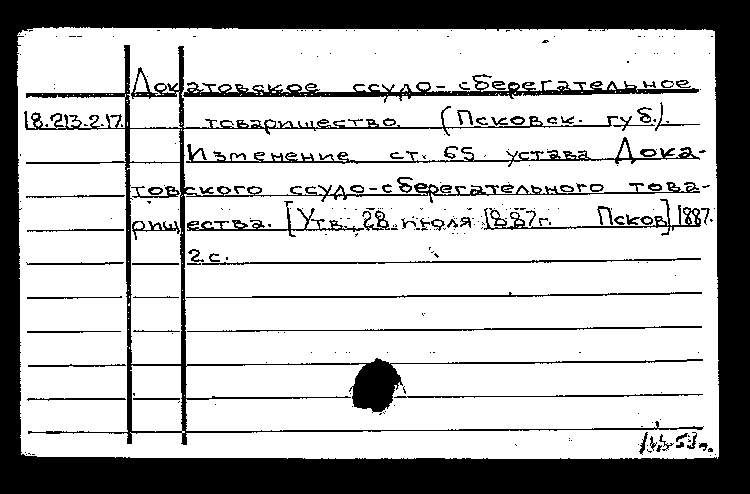 Докатовское ссудо-сберегательное
18.213.2.17. товарищество. (Псковск. губ.).
Изменение ст. 65 устава Дока-
товского ссудо-сберегательного това-
рищества. [Утв. 28 июля 1887г. Псков], 1887.
2 с.